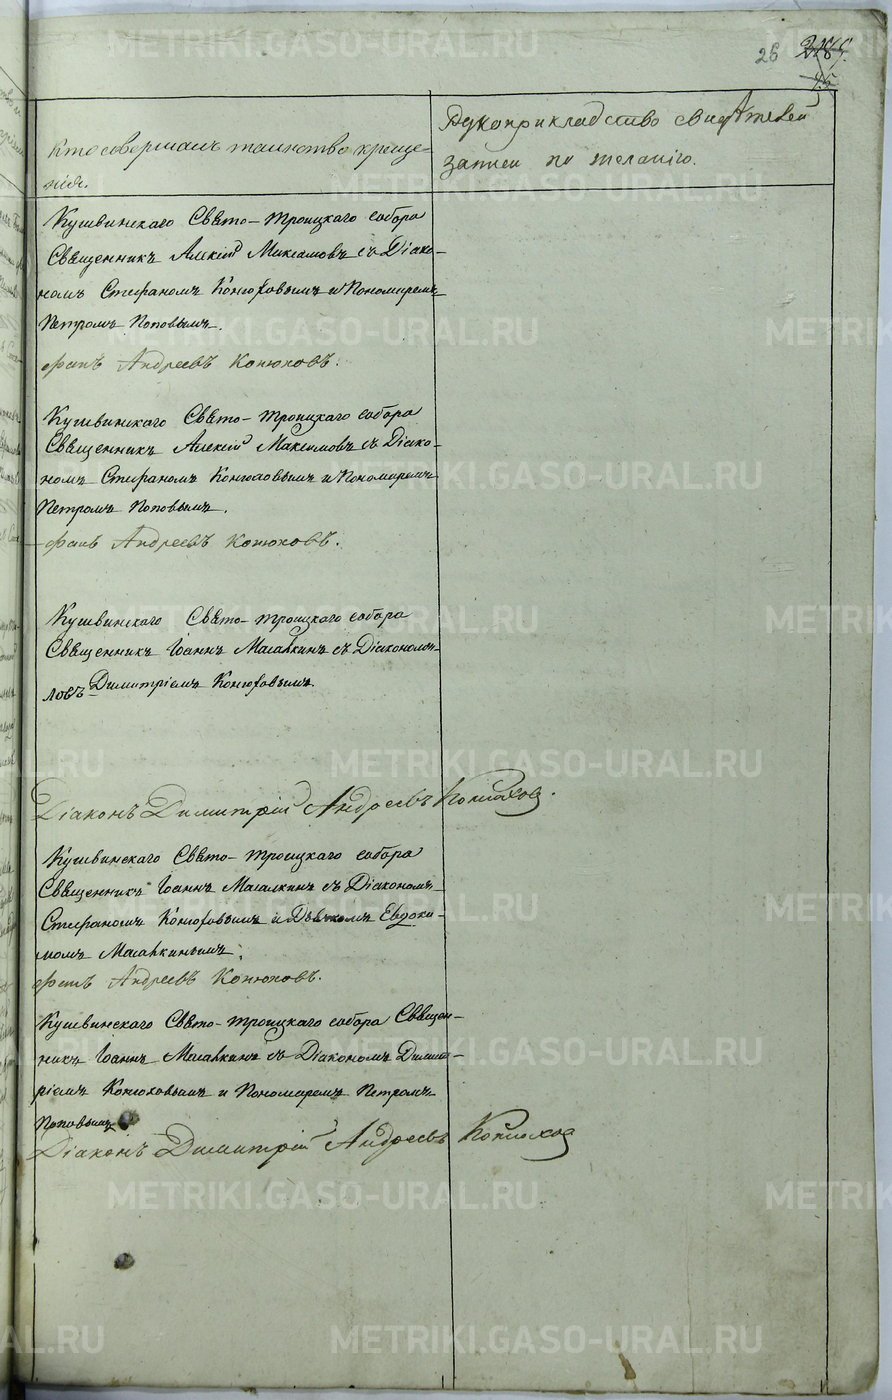 26 315.
Кто совершалъ таинство креще-
нія.
Рукоприкладство свидѣтелей
записи по желанію.
Кушвинскаго Свято-Троицкаго собора
Священникъ Алексій Максимовъ съ Діако-
номъ Стефаномъ Конюховымъ и Пономаремъ
Петромъ Поповымъ.
Андреевъ Конюховъ.
Кушвинскаго Свято-Троицкаго собора
Священникъ Алексій Максимовъ съ Діако-
номъ Стефаномъ Конюховымъ и Пономаремъ
Петромъ Поповымъ.
Андреевъ Конюховъ.
Кушвинскаго Свято-Троицкаго собора
Священникъ Іоаннъ Масалкинъ съ Діакономъ
Димитріемъ Конюховымъ.
Діаконъ Димитрій Андреевъ Конюховъ.
Кушвинскаго Свято-Троицкаго собора
Священникъ Іоаннъ Масалкинъ съ Діакономъ
Стефаномъ Конюховымъ и Дьячкомъ Евдоки-
момъ Масалкинымъ.
Андреевъ Конюховъ.
Кушвинскаго Свято-Троицкаго собора Священ-
никъ Іоаннъ Масалкинъ съ Діакономъ Димит-
ріемъ Конюховымъ и Пономаремъ Петромъ
Поповымъ
Діаконъ Димитрій Андреевъ Конюховъ
METRIKI.GASO-URAL.RU